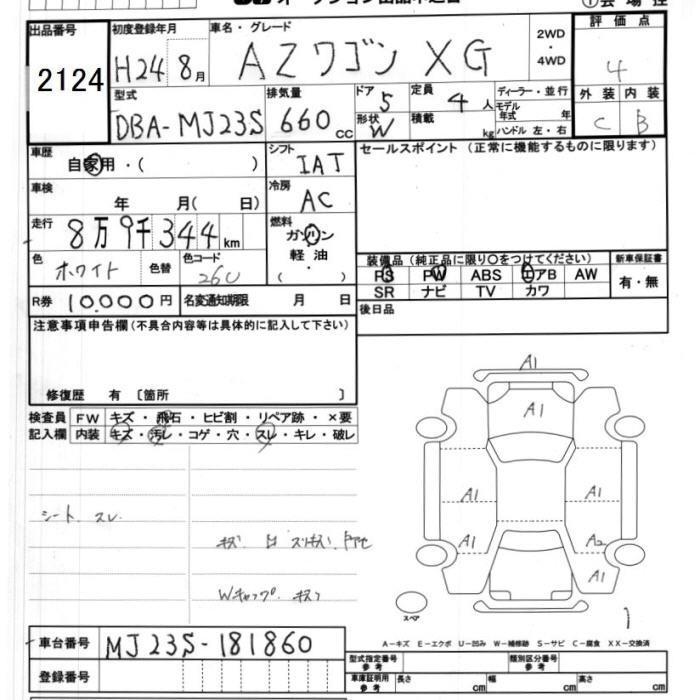 出品番号 2124
初度登録年月 H24 8月
車名・グレード AZワゴン XG
2WD・4WD
評価点 4
外装 C 内装 B
型式 DBA-MJ23S
排気量 660 cc
ドア 5
形状 W
定員 4 人
積載 kg
ディーラー・並行
モデル年式 年
ハンドル 左・右
車歴 自家用・( )
シフト IAT
セールスポイント (正常に機能するものに限ります)
車検 年 月( 日)
冷房 AC
走行 8万9千344km
燃料 ガソリン 軽油・( )
色 ホワイト 色替
色コード 26U
装備品 (純正品に限り〇をつけてください)
新車保証書
PS PW ABS エアB AW
SR ナビ TV カワ
有・無
R券 10,000円
名変通知期限 月 日
後日品
注意事項申告欄(不具合内容等は具体的に記入して下さい)
修復歴 有 〔箇所 〕
検査員記入欄
FW キズ・飛石・ヒビ割・リペア跡・×要
内装 キズ・汚レ・コゲ・穴・スレ・キレ・破レ
シート スレ
Wキャップ キズ
A1
A1
A1 A1
A1 A2
A1
スペア
A-キズ E-エクボ U-凹み W-補修跡 S-サビ C-腐食 XX-交換済
車台番号 MJ23S-181860
登録番号
型式指定番号 参考
類別区分番号 参考
車庫証明用 参考 長さ cm 幅 cm 高さ cm